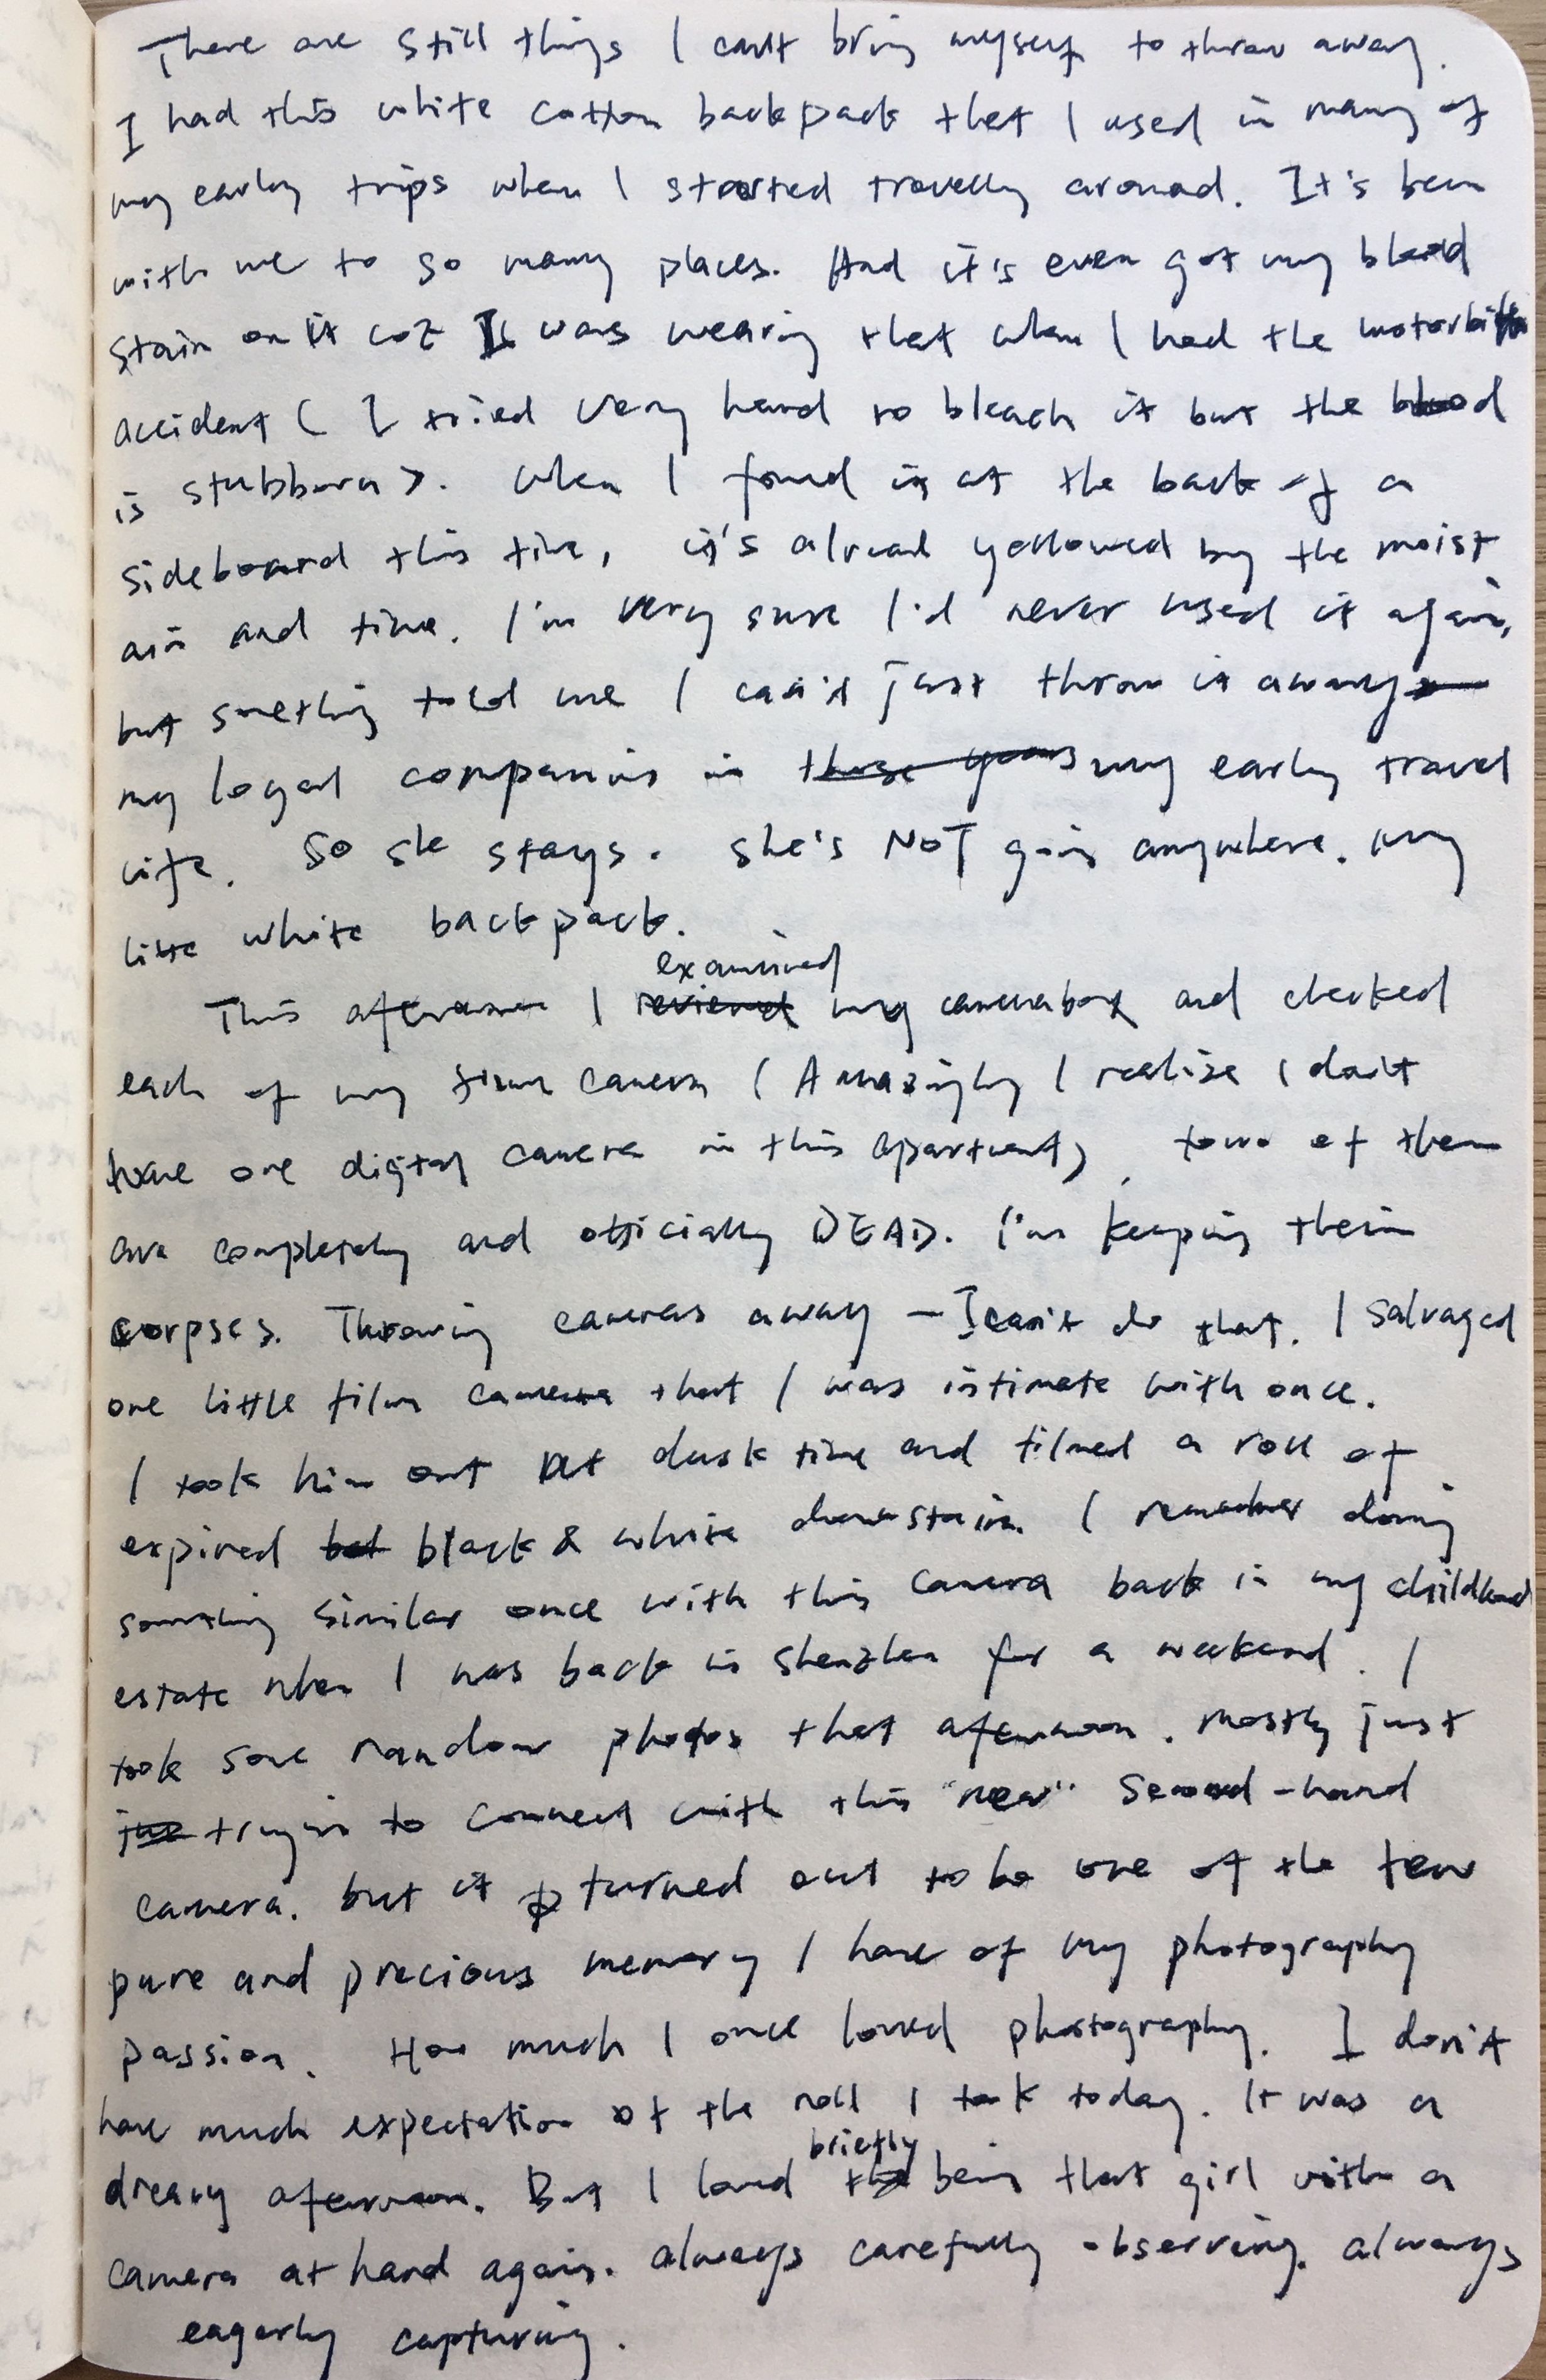 There are still things I can't bring myself to throw away.
I had this white cotton backpack that I used in many of
my early trips when I started travelly around. It's been
with me to so many places. And it's even got my blood
stain on it coz I was wearing that when I had the motorbike
accident ( I tried very hard to bleach it but the blood
is stubborn ). When I found it at the back of a
sideboard this time, it's alread yellowed by the moist
air and time. I'm very sure I'd never used it again,
but something told me I can't just throw it away
my loyal companion in those years my early travel
life. So she stays. She's NOT going anywhere. My
little white backpack.
examined
This afternoon I reviewed my camerabox and checked
each of my film camera ( Amazingly I realise I don't
have one digital camera in this apartment ) of them
are completely and officially DEAD. I'm keeping their
corpses. Throwing cameras away - I can't do that. I salvaged
one little film camera that I was intimate with once.
I took him out at dusk time and filmed a roll of
expired but black & white downstairs. I remember doing
something similar once with this camera back in my childhood
estate when I was back in Shenzhen for a weekend. I
took some random photos that afternoon. Mostly just
trying to connect with this "new" second-hand
camera. but it turned out to be one of the few
pure and precious memory I have of my photography
passion. How much I once loved photography. I don't
have much expectation of the roll I took today. It was a
briefly
dreary afternoon. But I loved being that girl with a
camera at hand again. always carefully observing. always
eagerly capturing.